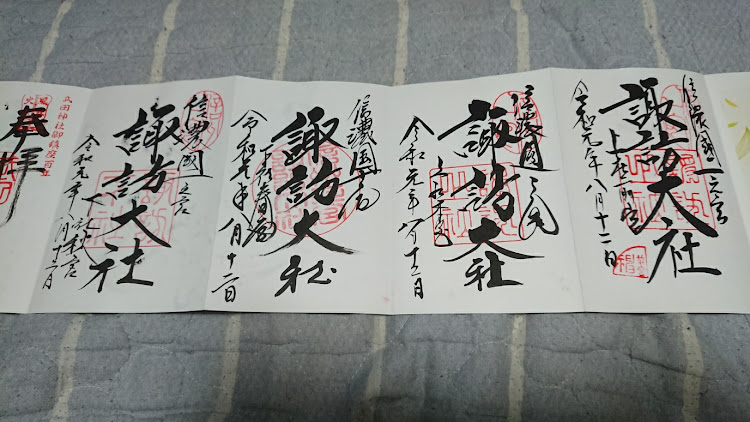 信濃國一之宮
諏訪大社
上社前宮
令和元年八月十二日
信濃國一之宮
諏訪大社
上社本宮
令和元年八月十二日
信濃国一之宮
諏訪大社
下社春宮
令和元年八月十二日
信濃國一之宮
諏訪大社
下社秋宮
令和元年八月十二日
奉拝